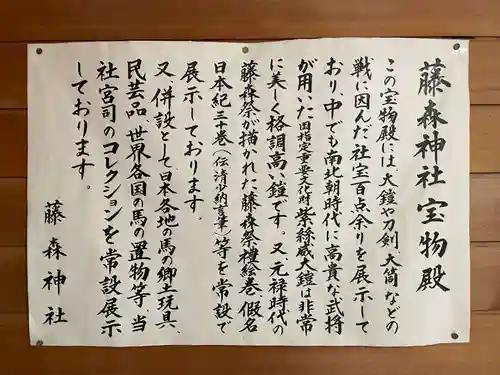 藤森神社宝物殿
この宝物殿には、大鎧や刀剣、大筒などの
戦に因んだ社宝百点余りを展示して
おり、中でも南北朝時代に高貴な武将
が用いた国指定重要文化財紫絲威大鎧は非常
に美しく格調高い鎧です。又、元禄時代の
藤森祭が描かれた藤森祭禮絵巻、假名
日本紀三十巻(伝清少納言筆)等を常設で
展示しております。
又、併設として日本各地の馬の郷土玩具、
民芸品、世界各国の馬の置物等、当
社宮司のコレクションを常設展示
しております。
藤森神社